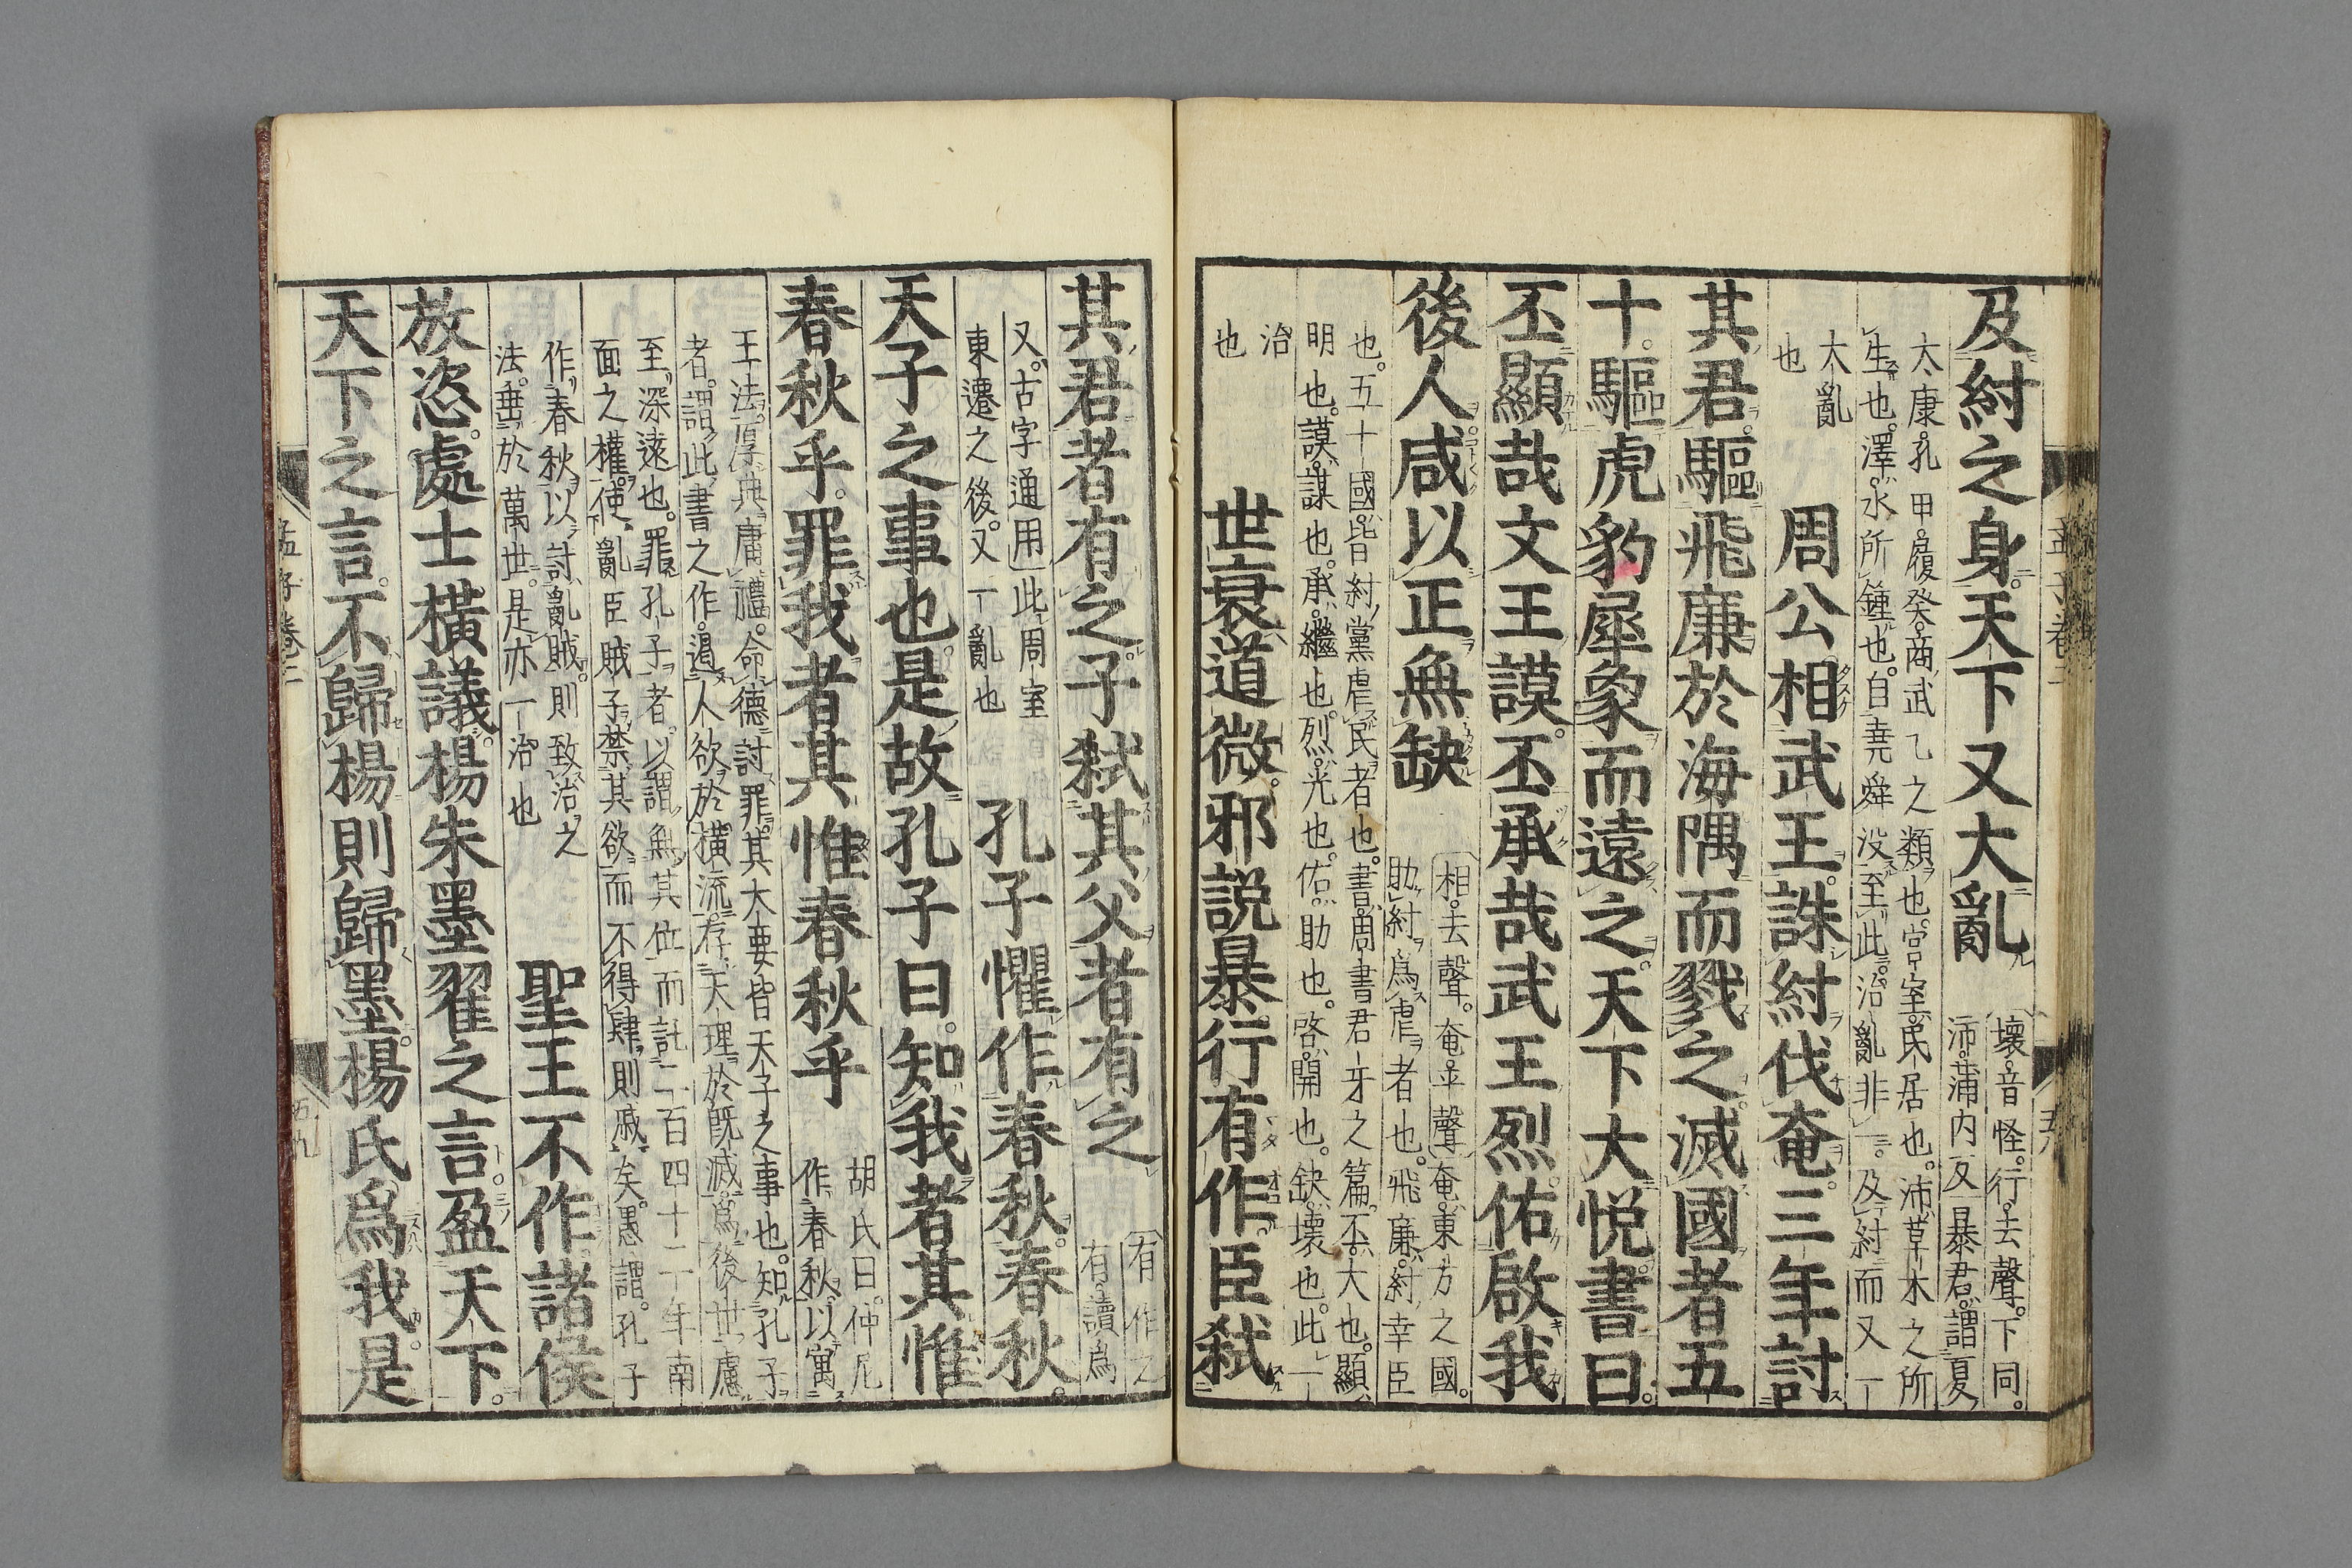 及紂之身天下又大亂
壞音怪行去聲下同
沛蒲内反暴君謂夏
太康孔甲履癸商武乙之類也宮室民居也沛草木之所
生也澤水所鍾也自堯舜没至此治亂非一及紂而又一
大亂
也
周公相武王誅紂伐奄三年討
其君驅飛廉於海隅而戮之滅國者五
十驅虎豹犀象而遠之天下大悦書曰
丕顯哉文王謨丕承哉武王烈佑啟我
後人咸以正無缺
相去聲奄平聲奄東方之國
助紂爲虐者也飛廉紂幸臣
也五十國皆紂黨虐民者也書周書君牙之篇丕大也顯
明也謨謀也承繼也烈光也佑助也啓開也缺壞也此一
治
也
世衰道微邪説暴行有作臣弑
其君者有之子弑其父者有之
有作之
有讀爲
又古字通用此周室
東遷之後又一亂也
孔子懼作春秋春秋
天子之事也是故孔子曰知我者其惟
春秋乎罪我者其惟春秋乎
胡氏曰仲尼
作春秋以寓
王法厚典庸禮命德討罪其大要皆天子之事也知孔子
者謂此書之作遏人欲於横流存天理於既滅爲後世慮
至深遠也罪孔子者以謂無其位而託二百四十二年南
面之權使亂臣賊子禁其欲而不得肆則戚矣愚謂孔子
作春秋以討亂賊則致治之
法垂於萬世是亦一治也
聖王不作諸侯
放恣處士横議楊朱墨翟之言盈天下
天下之言不歸楊則歸墨楊氏爲我是
孟子卷二
五九